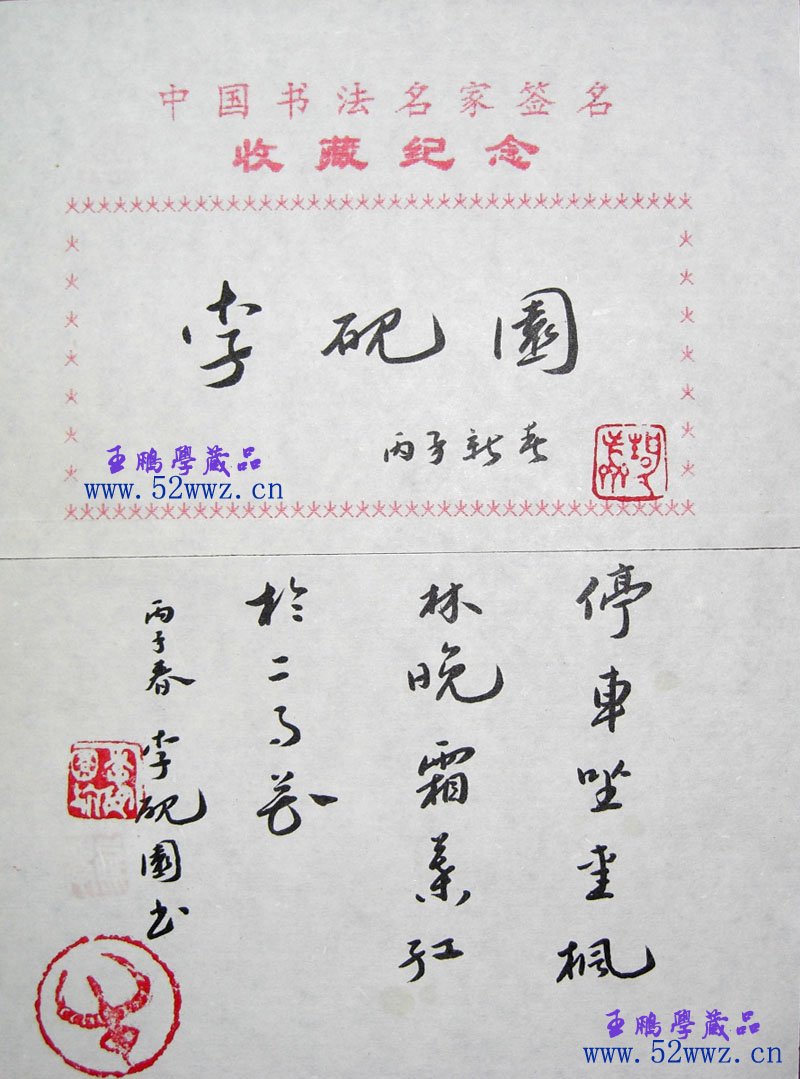 中国书法名家签名
收藏纪念
李砚園
丙子新春
王鵬學蔵品
www.52wwz.cn
停車坐愛楓
林晚霜葉紅
於二月花
丙子春 李砚園书
王鵬學蔵品
www.52wwz.cn